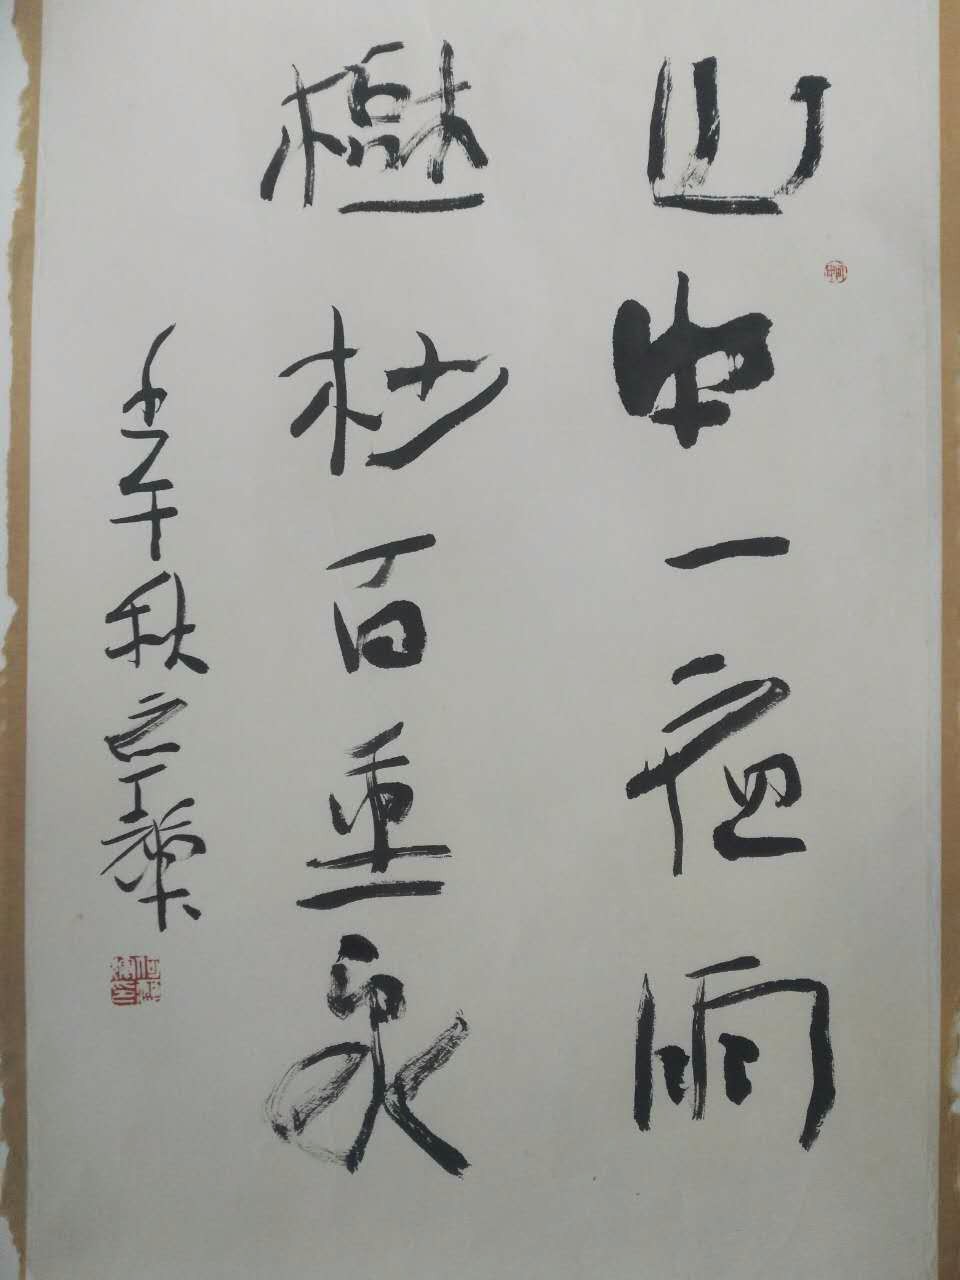 山中一夜雨
樹杪百重泉
秋之